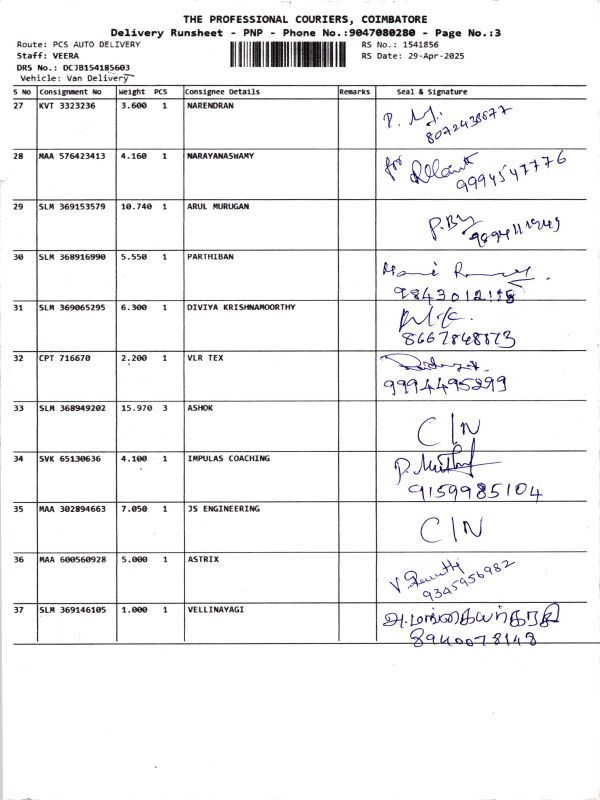 THE PROFESSIONAL COURIERS, COIMBATORE
Delivery Runsheet - PNP - Phone No.:9047080280 - Page No.:3
Route: PCS AUTO DELIVERY RS No.: 1541856
Staff: VEERA RS Date: 29-Apr-2025
DRS No.: DCJB154185603
Vehicle: Van Delivery
S No Consignment No Weight PCS Consignee Details Remarks Seal & Signature
27 KVT 3323236 3.600 1 NARENDRAN
8072438677
28 MAA 576423413 4.160 1 NARAYANASWAMY
for
9994547776
29 SLM 369153579 10.740 1 ARUL MURUGAN
30 SLM 368916990 5.550 1 PARTHIBAN
31 SLM 369065295 6.300 1 DIVIYA KRISHNAMOORTHY
8667848873
32 CPT 716670 2.200 1 VLR TEX
9994495299
33 SLM 368949202 15.970 3 ASHOK
C/N
34 SVK 65130636 4.100 1 IMPULAS COACHING
9159985104
35 MAA 302894663 7.050 1 JS ENGINEERING
C/N
36 MAA 600560928 5.000 1 ASTRIX
9345956982
37 SLM 369146105 1.000 1 VELLINAYAGI
8940078148